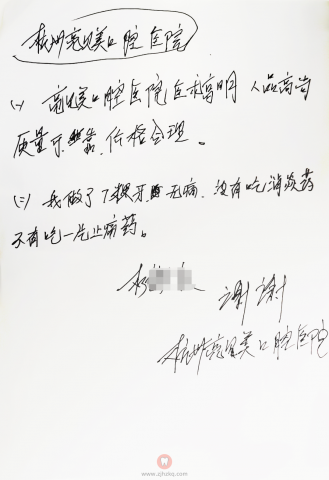 杭州亮贝美口腔医院
(一) 亮贝美口腔医院医术高明 人品高尚
质量可靠，价格合理。
(二) 我做了7颗牙 无痛. 没有吃消炎药
不有吃一片止痛药。
谢谢
杭州亮贝美口腔医院
www.zjhdsq.com